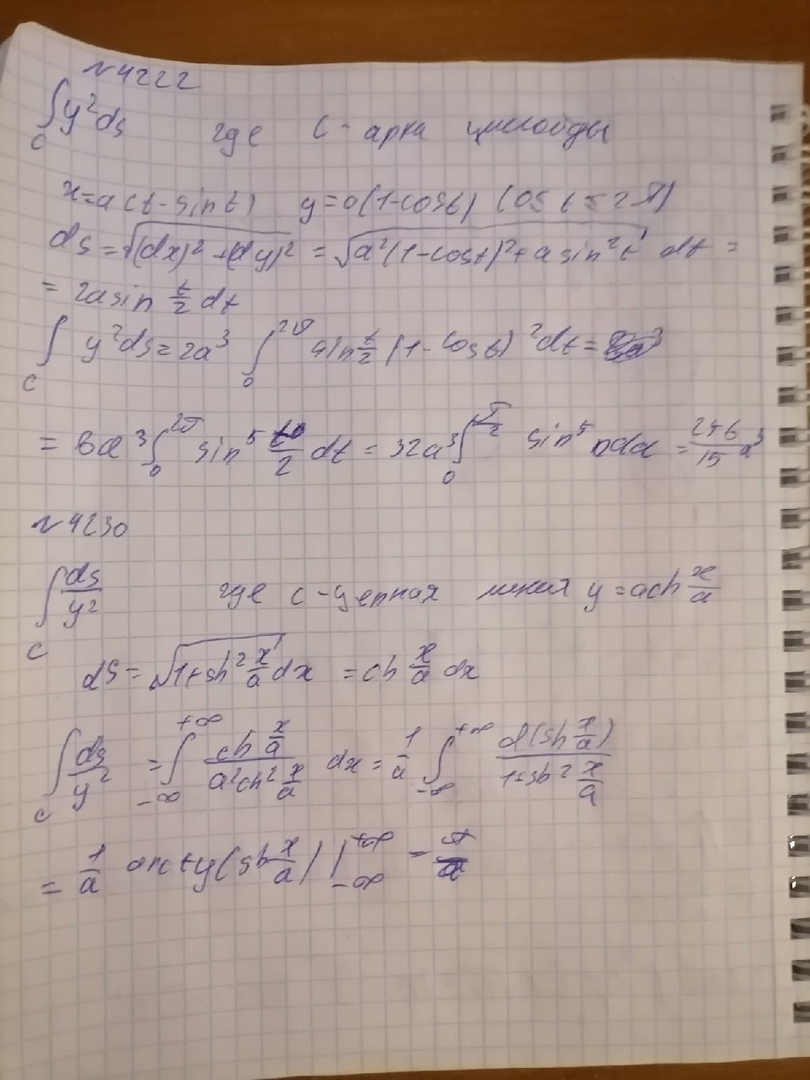 №4222
∫_C y²ds где C - арка циклоиды
x=a(t-sint) y=a(1-cost) (0≤t≤2π)
ds=√((dx)²+(dy)²) = √(a²(1-cost)²+a sin²t) dt =
= 2a sin t/2 dt
∫_C y²ds=2a³ ∫_0^{2π} sin t/2 (1-cost)² dt=
= 8a³ ∫_0^{2π} sin⁵ t/2 dt = 32a³ ∫_0^{π/2} sin⁵ αdα = 256/15 a³
№4230
∫_C ds/y² где C - цепная линия y=ach x/a
ds= √(1+sh² x/a) dx = ch x/a dx
∫_C ds/y² = ∫_{-∞}^{+∞} (ch x/a)/(a²ch² x/a) dx = 1/a ∫_{-∞}^{+∞} d(sh x/a)/(1+sh² x/a)
= 1/a arctg(sh x/a) |_{-∞}^{+∞} = π/a